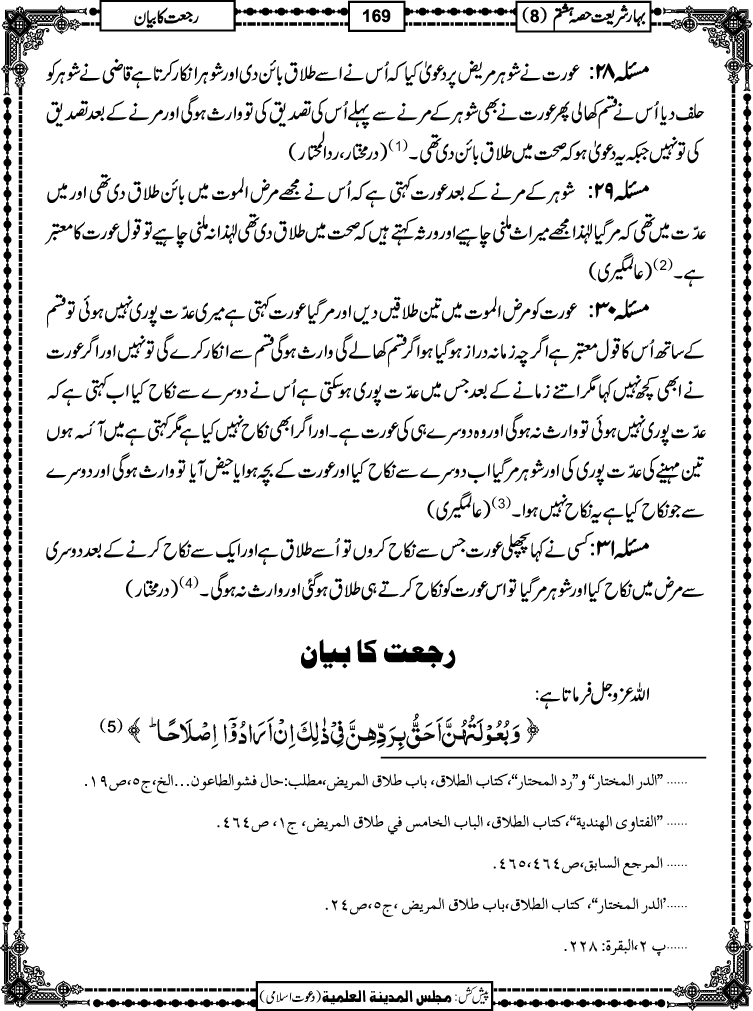 بہار شریعت حصہ ہشتم (8)
169
رجعت کا بیان
مسئلہ ۲۸: عورت نے شوہر مریض پر دعویٰ کیا کہ اُس نے اسے طلاق بائن دی اور شوہر انکار کرتا ہے قاضی نے شوہر کو
حلف دیا اُس نے قسم کھالی پھر عورت نے بھی شوہر کے مرنے سے پہلے اُس کی تصدیق کی تو وارث ہوگی اور مرنے کے بعد تصدیق
کی تو نہیں جبکہ یہ دعویٰ ہو کہ صحت میں طلاق بائن دی تھی۔ (1) (درمختار، ردالمحتار)
مسئلہ ۲۹: شوہر کے مرنے کے بعد عورت کہتی ہے کہ اُس نے مجھے مرض الموت میں بائن طلاق دی تھی اور میں
عدّت میں تھی کہ مرگیا لہٰذا مجھے میراث ملنی چاہیے اور ورثہ کہتے ہیں کہ صحت میں طلاق دی تھی لہٰذا نہ ملنی چاہیے تو قول عورت کا معتبر
ہے۔ (2) (عالمگیری)
مسئلہ ۳۰: عورت کو مرض الموت میں تین طلاقیں دیں اور مرگیا عورت کہتی ہے میری عدّت پوری نہیں ہوئی تو قسم
کے ساتھ اُس کا قول معتبر ہے اگرچہ زمانہ دراز ہوگیا ہو اگر قسم کھالے گی وارث ہوگی قسم سے انکار کرے گی تو نہیں اور اگر عورت
نے ابھی کچھ نہیں کہا مگر اتنے زمانے کے بعد جس میں عدّت پوری ہوسکتی ہے اُس نے دوسرے سے نکاح کیا اب کہتی ہے کہ
عدّت پوری نہیں ہوئی تو وارث نہ ہوگی اور وہ دوسرے ہی کی عورت ہے۔ اور اگر ابھی نکاح نہیں کیا ہے مگر کہتی ہے میں آئسہ ہوں
تین مہینے کی عدّت پوری کی اور شوہر مرگیا اب دوسرے سے نکاح کیا اور عورت کے بچہ ہوا یا حیض آیا تو وارث ہوگی اور دوسرے
سے جو نکاح کیا ہے یہ نکاح نہیں ہوا۔ (3) (عالمگیری)
مسئلہ ۳۱: کسی نے کہا پچھلی عورت جس سے نکاح کروں تو اُسے طلاق ہے اور ایک سے نکاح کرنے کے بعد دوسری
سے مرض میں نکاح کیا اور شوہر مرگیا تو اس عورت کو نکاح کرتے ہی طلاق ہوگئی اور وارث نہ ہوگی۔ (4) (درمختار)
رجعت کا بیان
اللہ عزوجل فرماتا ہے:
﴿ وَبُعُوْلَتُهُنَّ اَحَقُّ بِرَدِّهِنَّ فِیْ ذٰلِكَ اِنْ اَرَادُوْۤا اِصْلَاحًاؕ ﴾ (5)
...... ”الدر المختار“ و”رد المحتار“، کتاب الطلاق، باب طلاق المریض، مطلب: حال فشو الطاعون... الخ، ج٥، ص١٩.
...... ”الفتاوی الهندیة“، کتاب الطلاق، الباب الخامس في طلاق المریض، ج١، ص٤٦٤.
...... المرجع السابق، ص٤٦٤، ٤٦٥.
......”الدر المختار“، کتاب الطلاق، باب طلاق المریض، ج٥، ص٢٤.
......پ ٢، البقرة: ٢٢٨.
پیش کش: مجلس المدینۃ العلمیۃ (دعوت اسلامی)